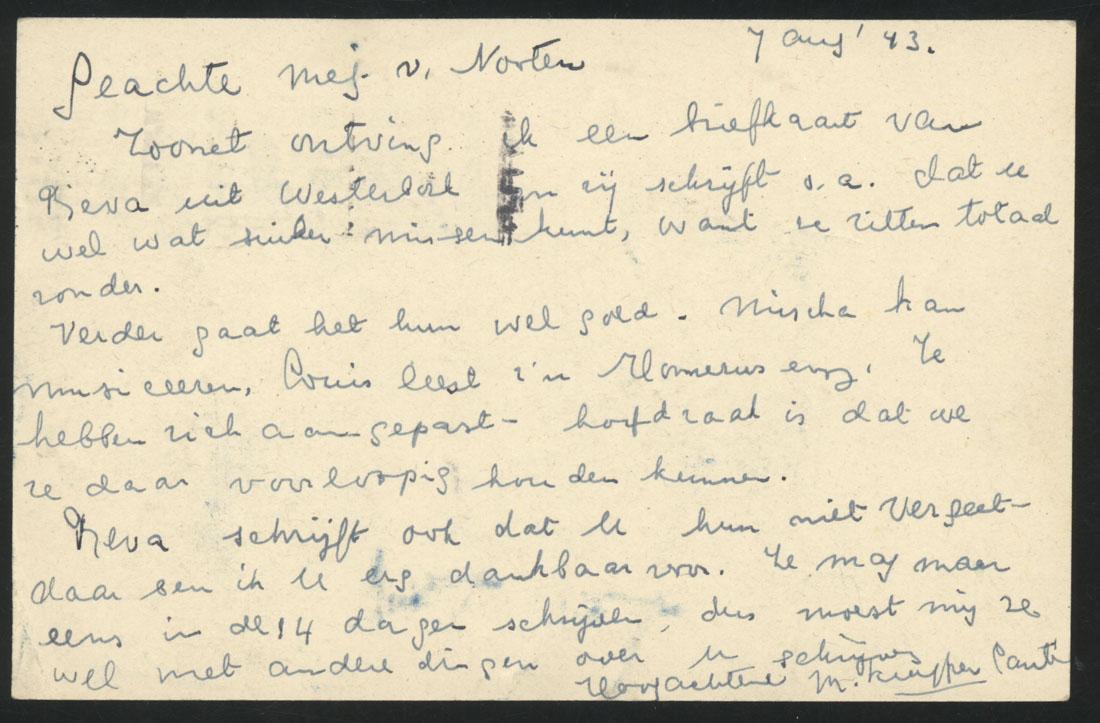 7 aug' 43.
Geachte Mej. v. Nooten
Zoonet ontving ik een briefkaart van
Reva uit Westerbork en zij schrijft o.a. dat u
wel wat suiker missen kunt, want ze zitten totaal
zonder.
Verder gaat het hun wel goed. Mischa kan
musiceeren, Louis leest z'n Homerus enz. Ze
hebben zich aangepast - hoofdzaak is dat we
ze daar voorloopig houden kunnen.
Reva schrijft ook dat U hun niet vergeet -
daar ben ik U erg dankbaar voor. Ze mag maar
eens in de 14 dagen schrijven, dus moest mij ze
wel met andere dingen over u schrijven
Hoogachtend M. Kuyper